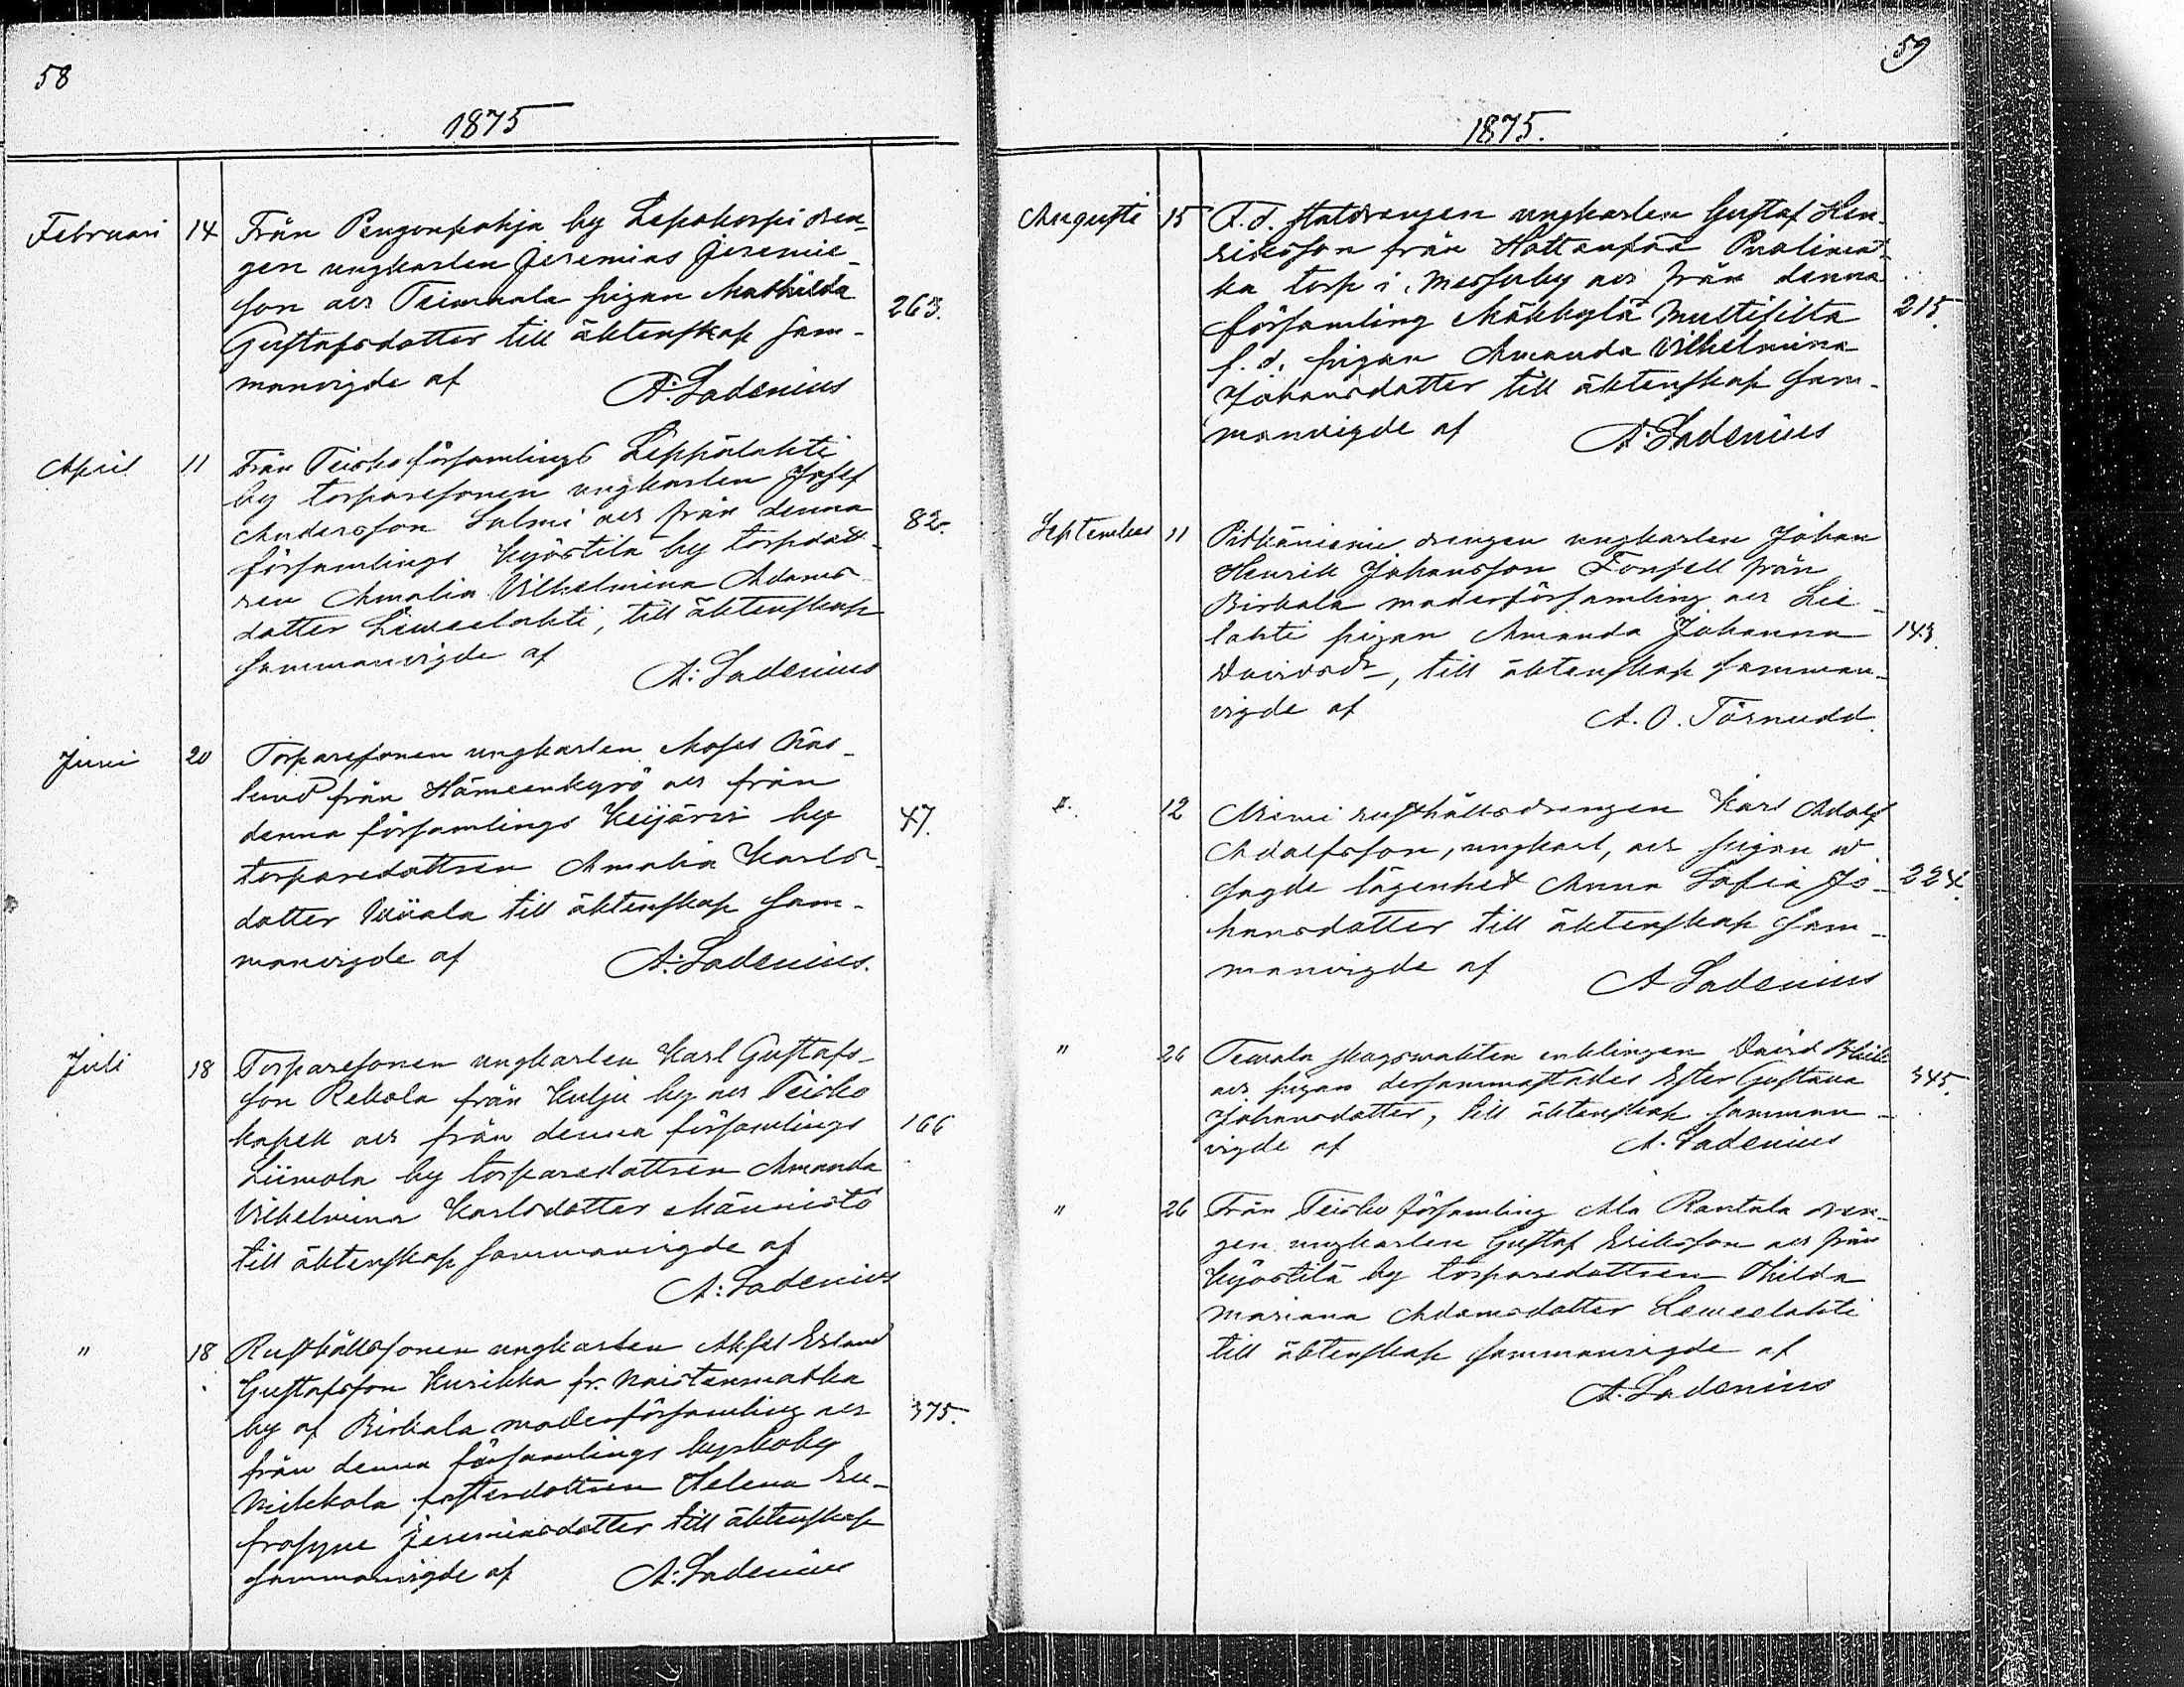 58
1875
Februari 14 Från Pengonpohja by Lepokorpi drän-
gen ungkarlen Jeremias Jeremie-
son och Teimaala pigan Mathilda 263.
Gustafsdotter till äktenskap sam-
manvigde af A: Ladenius
April 11 Från Teisko församlings Leppälahti
by torparesonen ungkarlen Josef
Andersson Salmi och från denna 82.
församlings Kyöstilä by torpdott-
ren Amalia Vilhelmina Adams-
dotter Liweelahti, till äktenskap
sammanvigde af A: Ladenius
Juni 20 Torparesonen ungkarlen Moses Näs-
lund från Hämeenkyrö och från
denna församlings Keijärvi by 47.
torparedottren Amalia Karls-
dotter till äktenskap sam-
manvigde af A: Ladenius.
Juli 18 Torparesonen ungkarlen Karl Gustafs-
son Rekola från Kulju by och Teisko
kapell och från denna församlings 166
Liimola by torparedottren Amanda
Vilhelmina Karlsdotter Männistö
till äktenskap sammanvigde af
A: Ladenius
" 18 Rusthållssonen ungkarlen Aksel Erland
Gustafsson Kurikka fr. Naistenmatka
by af Birkala moderförsamling och 375.
från denna församlings kyrkoby
Mikkola fosterdottren Helena Eu-
frosyne Jeremiasdotter till äktenskap
sammanvigde af A: Ladenius
59
1875.
Augusti 15 F. d. statdrengen ungkarlen Gustaf Hen-
riksson från Hattanpää Puolimat-
ka torp i Messuby och från denna
församling Mäkkylä Multisilta 215.
f. d. pigan Amanda Vilhelmina
Johansdotter till äktenskap sam-
manvigde af A: Ladenius
September 11 Pitkäniemi drengen ungkarlen Johan
Henrik Johansson Fonsell från
Birkala moderförsamling och Lie-
lahti pigan Amanda Johanna 143.
Davidsdr, till äktenskap samman-
vigde af A. O. Törnudd.
". 12 rusthållsdrengen Karl Adolf
Adolfsson, ungkarl, och pigan å
sagde lägenhet Anna Sofia Jo- 224.
hansdotter till äktenskap sam-
manvigde af A Ladenius
" 26 Temala skogswakten enklingen David
och pigan dersammastädes Ester Gustava 345.
Johansdotter, till äktenskap samman-
vigde af A. Ladenius
" 26 Från Teisko församling Ala Rantala dren-
gen ungkarlen Gustaf Eriksson och från
Kyöstilä by torparedottren Hilda
Mariana Adamsdotter Leweelahti
till äktenskap sammanvigde af
A. Ladenius